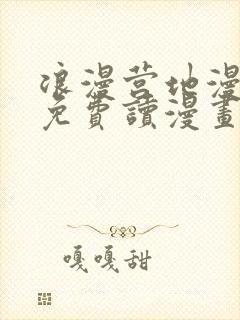 浪漫营地漫
免費讀漫畫
嘎嘎甜